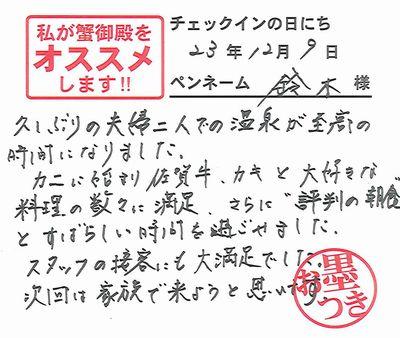 私が蟹御殿を
オススメ
します!!
チェックインの日にち
23年12月9日
ペンネーム 鈴木 様
久しぶりの夫婦二人での温泉が至高の
時間になりました。
カニに始まり佐賀牛、カキと大好きな
料理の数々に満足、さらに"評判の朝食"
とすばらしい時間を過ごせました。
スタッフの接客にも大満足でした。
次回は家族で来ようと思います。
お墨つき